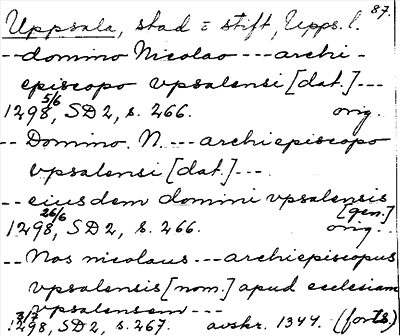 87.
Uppsala, stad = stift, Upps. l.
-- domino Nicolao --- archi-
episcopo vpsalensi [dat.] ---
1298 5/6, SD 2, s. 266. orig.
-- Domino. N. --- archiepiscopo
vpsalensi [dat.] ---.
-- eiusdem domini vpsalensis
[gen.]
1298 26/6, SD 2, s. 266. orig.
-- Nos nicolaus --- archiepiscopus
vpsalensis [nom.] apud ecclesiam
vpsalensem ---
1298 3/7, SD 2, s. 267. avskr. 1344. (forts.)